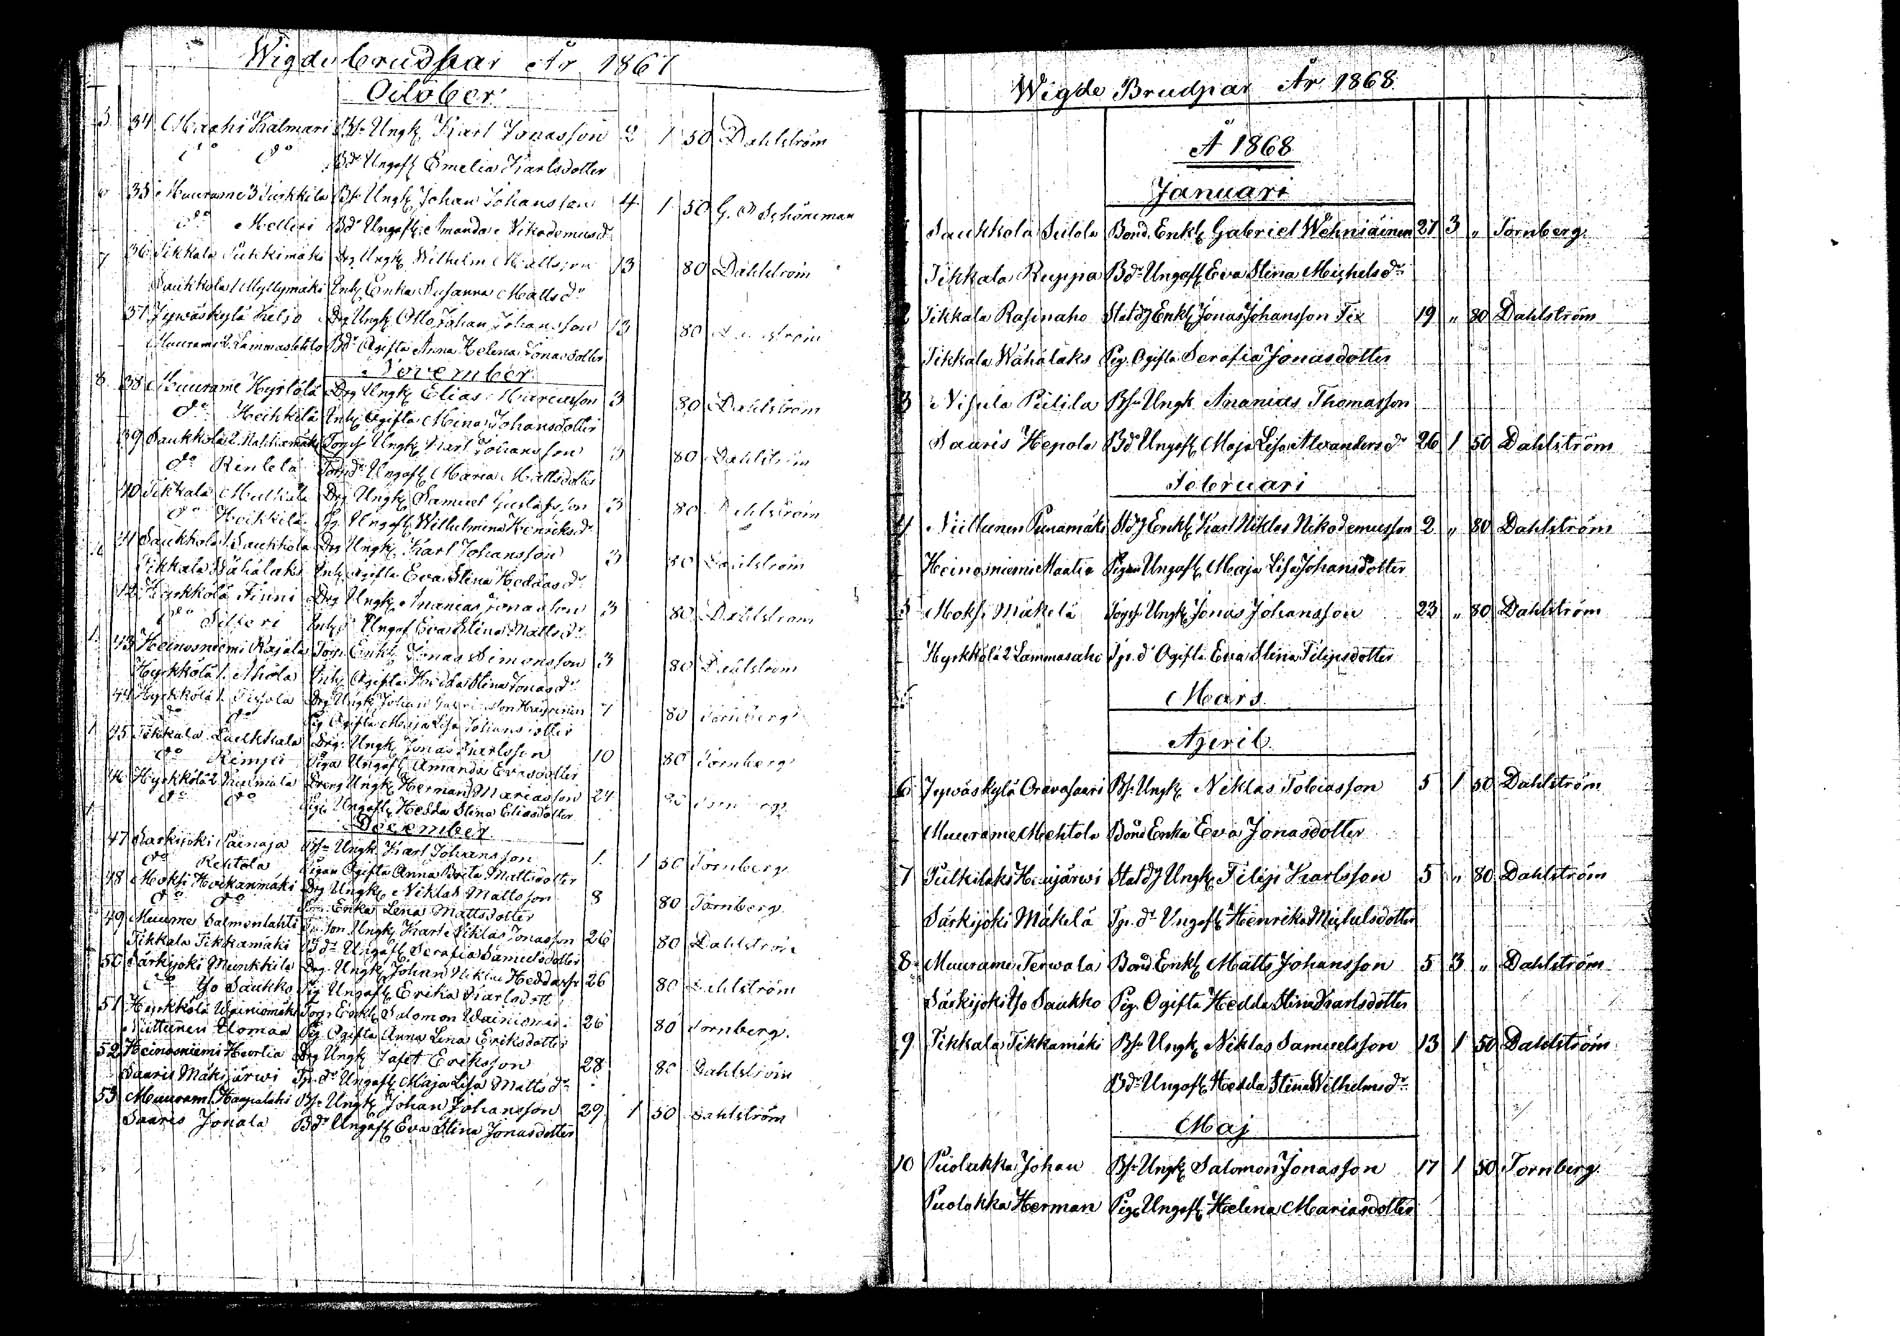 Wigde brudpar År 1867
October
34 Maahi Kalmari Bs. Ungk. Karl Jonasson 2 1 50 Dahlström
do do Bdr Ungaf. Emelia Karlsdotter
35 Muurame 3 Bs. Ungk. Johan Johansson 4 1 50 G. Schöneman
do Molleri Bdr Ungaf. Amanda Nikodemusdr
36 Tikkala Drg Ungk. Wilhelm Mattsson 13 80 Dahlström
Saukkola 1 Myllymäki Inh. Enka Susanna Mattsdr
37 Jywäskylä Keljo Drg Ungk. Otto Johan Johansson 13 80
Muurame 2 Lammasahto Bdr Ogifta Anna Helena Jonasdotter
November
38 Muurame Hyrtölä Drg Ungk. Elias Marcusson 3 80 Dahlström
do Heikkilä Inh. Ogifta Mina Johansdotter
39 Saukkola 2 Torps. Ungk. Karl Johansson 3 80 Dahlström
do Rinlelä Torpdr Ungaf. Maria Mattsdotter
40 Tikkala Mulkola Drg Ungk. Samuel Gustafsson 3 80 Dahlström
do Heikkilä Pig. Ungaf. Wilhelmina Henriksdr
41 Saukkola 1 Saukkola Drg Ungk. Karl Johansson 3 80 Dahlström
Tikkala Wähälaks Inh. Ogifta Eva Stina Heddasdr
42 Hyrkkölä Finni Drg Ungk. Ananias Jonasson 3 80 Dahlström
do Silleri Inh. dr Ungaf. Eva Stina Mattsdr
43 Heinosniemi Rajala Torp. Enkl. Jonas Simonsson 3 80 Dahlström
Hyrkkölä 1. Ahola Inh. Ogifta Hedda Stina Jonasdr
44 Hyrkkölä 1. Tijola Drg Ungk. Johan 7 80 Tornberg
do do Pig Ogifta Maja Lisa Johansdotter
45 Tikkala Luikkala Drg. Ungk. Jonas Karlsson 10 80 Tornberg
do Rimpi Piga Ungaf. Amanda Evasdotter
46 Hyrkkölä 2 Kialmala Dreng Ungk. Herman Mariasson 24 80 Tornberg
do do Piga Ungaf. Hedda Stina Eliasdotter
December
47 Särkijoki Painaja Bs. Ungk. Karl Johansson 1. 1 50 Tornberg
do Rehtola Pigan Ogifta Anna Brita Mattsdotter
48 Moksi Hoikanmäki Drg Ungk. Niklas Mattsson 8 80 Tornberg
do do Enka Lena Mattsdotter
49 Muurame Salmenlahti Tp. Son Ungk. Karl Niklas Jonasson 26 80 Dahlström
Tikkala Tikkamäki Bdr Ungaf. Serafia Samuelsdotter
50 Särkijoki Munkkila Drg. Ungk. Johan Niklas Heddasson 26 80 Dahlström
do Yo Saukko Pig Ungaf. Erika Karlsdott
51 Hyrkkölä Wainiomäki Torp. Enkl. Salomon 26 80 Tornberg.
Niittunen Uomaa Pig. Ogifta Anna Lena Eriksdotter
52 Heinosniemi Heortia Drg Ungk. Jafet Eriksson 28 80 Dahlström
Saaris Mäkijärwi Tp. dr Ungaf. Maja Lisa Mattsdr
53 Muurame Haapalaki Bs. Ungk. Johan Johansson 29 1 50 Dahlström
Saaris Jonala Bdr Ungaf. Eva Stina Jonasdotter
Wigde Brudpar År 1868
Å 1868
Januari
1 Saukkola Sulola Bond. Enkl. Gabriel Wehniäinen 27 3 " Tornberg.
Tikkala Ruppa Bdr Ungaf. Eva Stina Michelsdr
2 Tikkala Rasinaho Statdg Enkl. Jonas Johansson Fix 19 " 80 Dahlström
Tikkala Wähälaks Pig. Ogifta Serafia Jonasdotter
3 Nisula Piilila Bs. Ungk. Ananias Thomasson
Saaris Hepola Bdr Ungaf. Maja Lisa Alexandersdr 26 1 50 Dahlström
Februari
4 Niittunen Punamäki Stdg Enkl. Karl Niklas Nikodemusson 2 " 80 Dahlström
Heinosniemi Maatia Pigan Ungaf. Maja Lisa Johansdotter
5 Moksi Mäkelä Torps. Ungk. Jonas Johansson 23 " 80 Dahlström
Hyrkkölä 2 Lammasaho Tp. dr Ogifta Eva Stina Filipsdotter
Mars
April
6 Jywäskylä Oravasaari Bs. Ungk. Niklas Tobiasson 5 1 50 Dahlström
Muurame Mehtola Bond Enka Eva Jonasdotter
7 Putkilaks Hauijärwi Statdg Ungk. Filip Karlsson 5 " 80 Dahlström
Särkijoki Mäkelä Tp. dr Ungaf. Henrika Michelsdotter
8 Muurame Terwala Bond Enkl. Matts Johansson 5 3 " Dahlström
Särkijoki Yo Saukko Pig. Ogifta Hedda Stina Karlsdotter
9 Tikkala Tikkamäki Bs. Ungk. Niklas Samuelsson 13 1 50 Dahlström
Bdr Ungaf. Hedda Stina Wilhelmsdr
Maj
10 Puolukka Johan Bs. Ungk. Salomon Jonasson 17 1 50 Tornberg
Puolakka Herman Piga Ungaf. Helena Mariasdotter